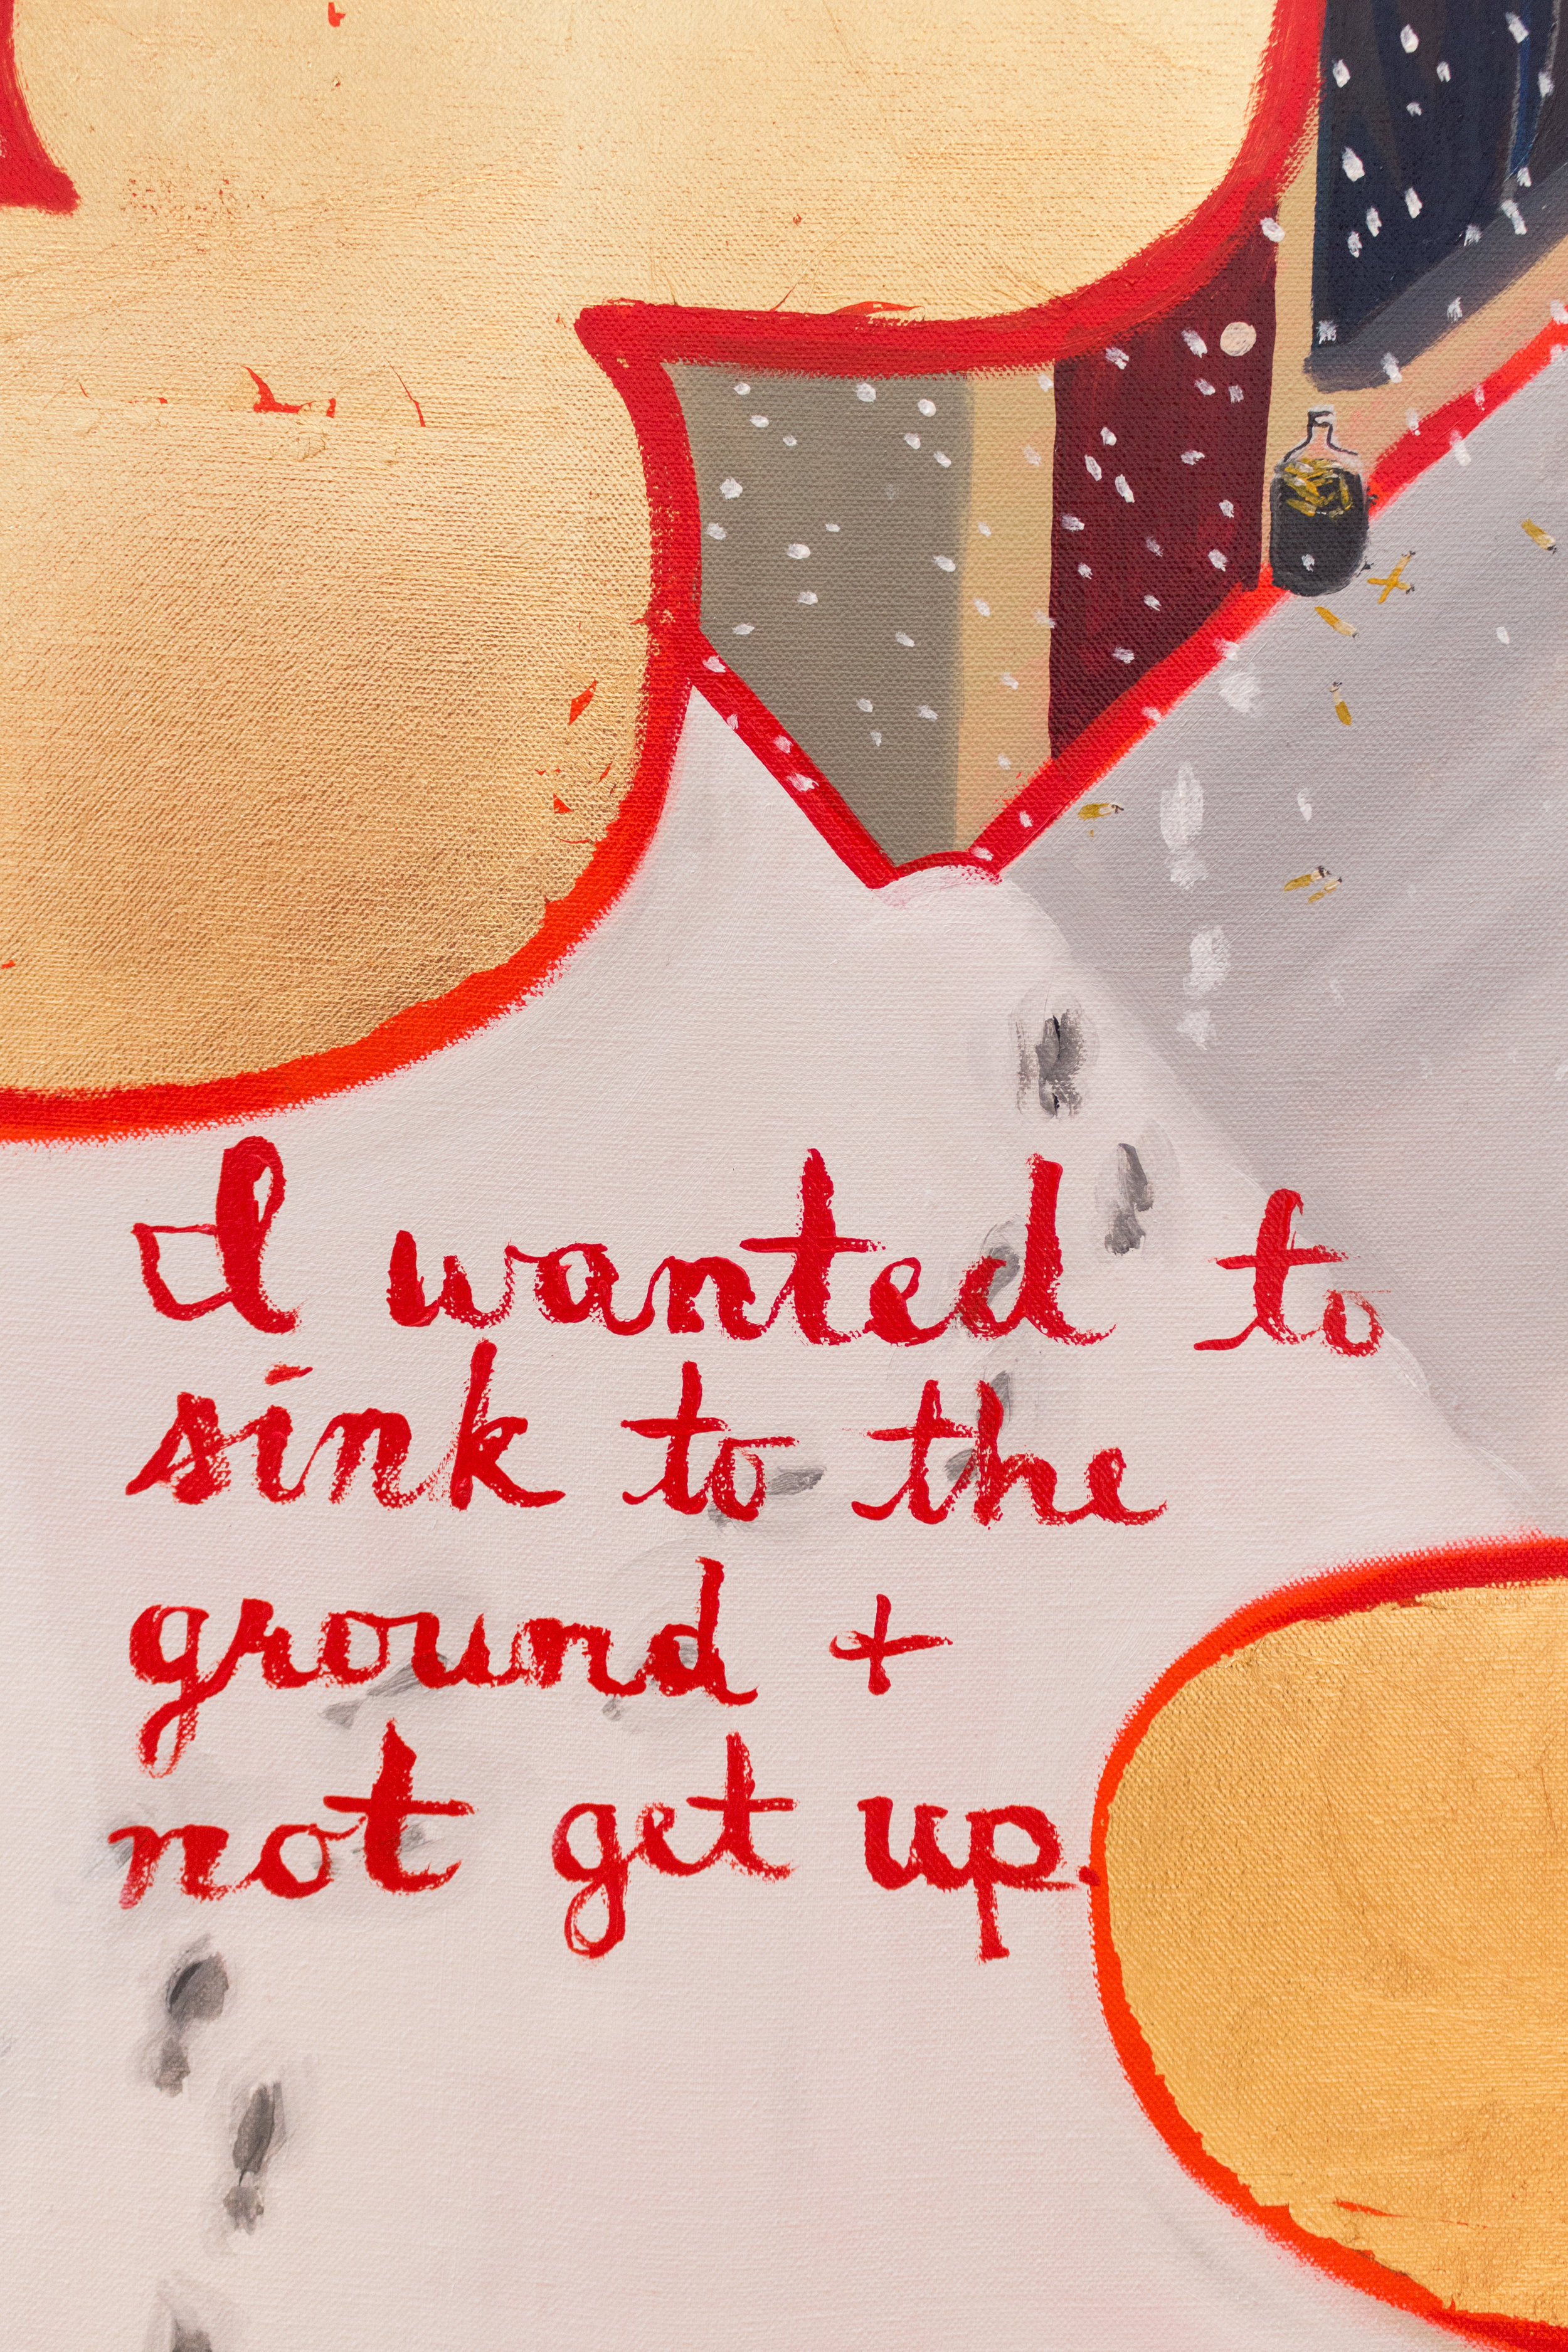 I wanted to
sink to the
ground +
not get up.